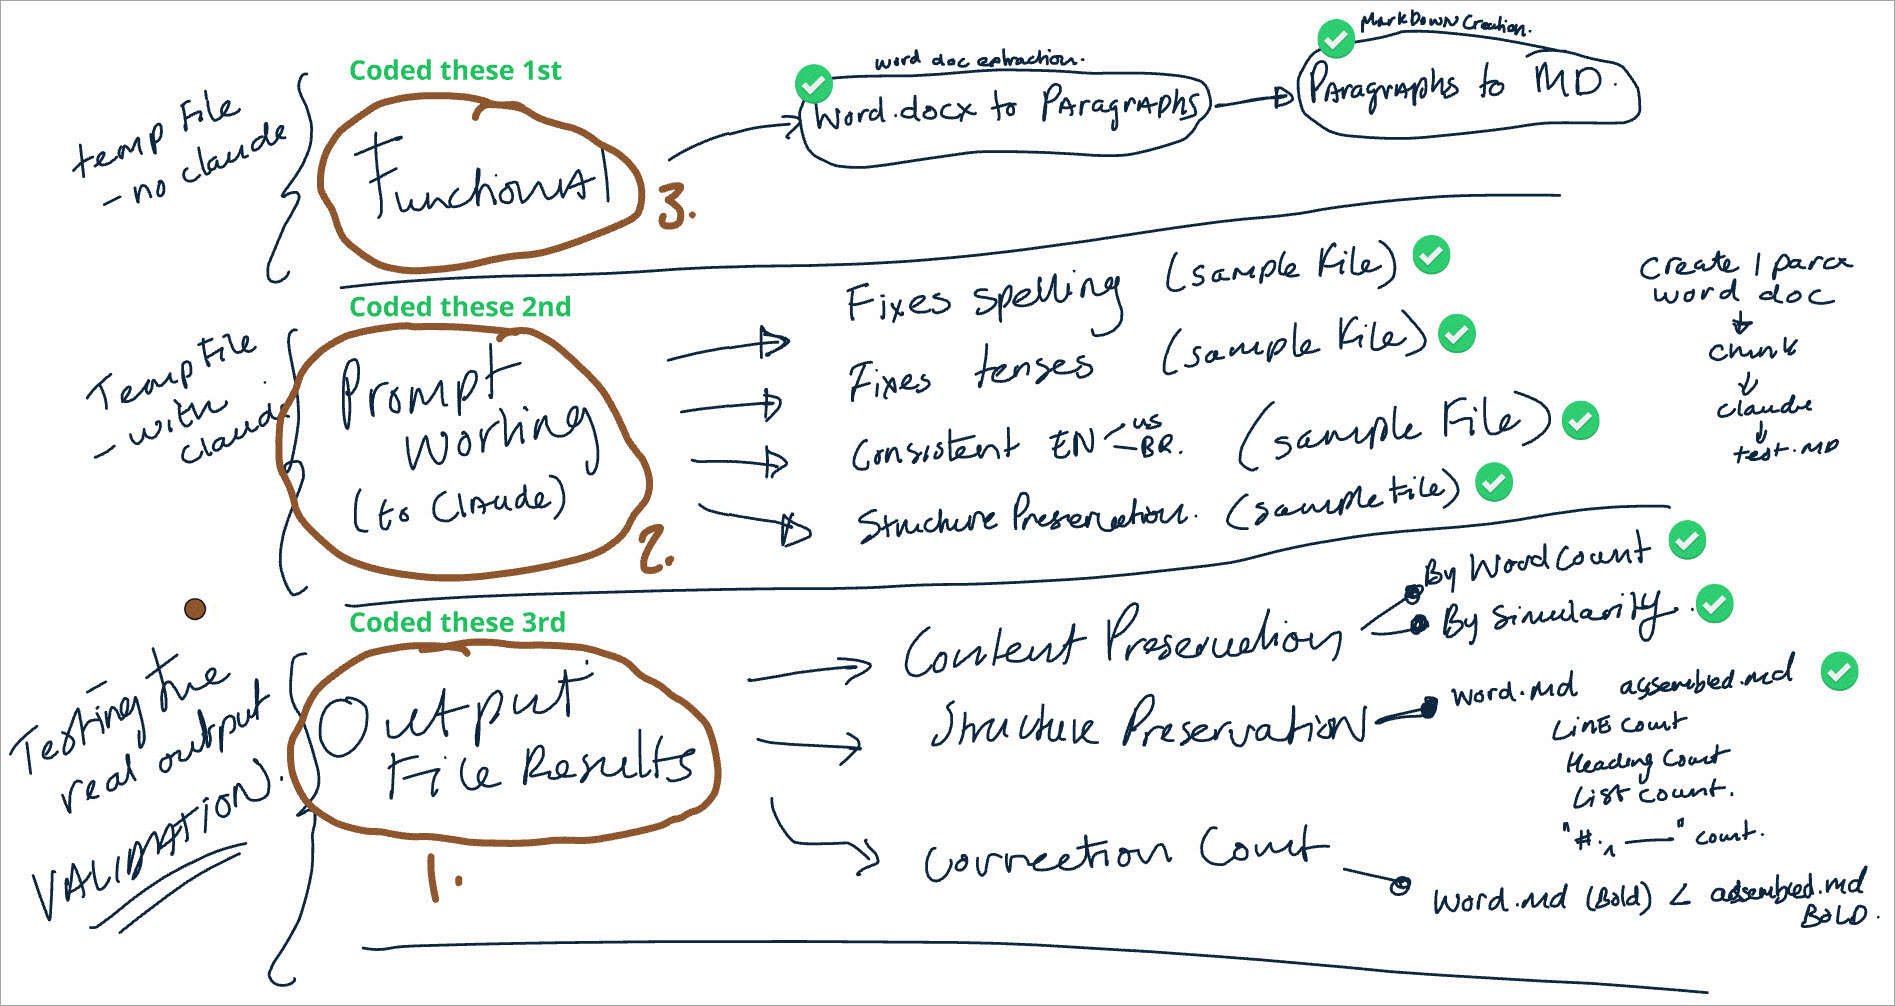 Coded these 1st
temp File
- no claude
Functional
3.
word doc extraction.
Word.docx to Paragraphs
MarkDown Creation.
Paragraphs to MD.
Coded these 2nd
Temp File
- with
claude
Prompt
Working
(to Claude)
2.
Fixes spelling (sample File)
Fixes tenses (sample File)
Consistent EN US
BR.
(sample File)
Structure Preservation. (sample File)
Create 1 para
word doc
chunk
claude
test.MD
Coded these 3rd
Testing the
real output
VALIDATION.
Output
File Results
1.
Content Preservation
By Word Count
By Simularity.
Structure Preservation
Word.md assembled.md
Line count
Heading Count
List count.
"#. " count.
Correction Count
Word.md (Bold) < assembled.md
BOLD.